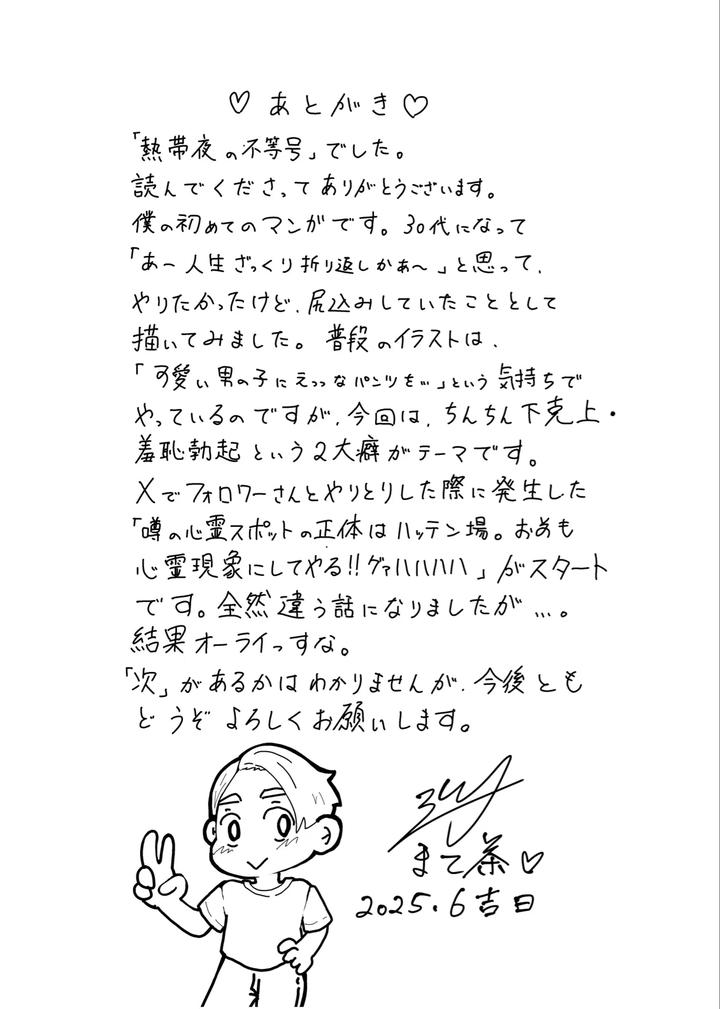 ♡ あとがき ♡
「熱帯夜の不等号」でした。
読んでくださってありがとうございます。
僕の初めてのマンガです。30代になって
「あ〜人生ざっくり折り返しかぁ〜」と思って、
やりたかったけど、尻込みしていたこととして
描いてみました。普段のイラストは、
「可愛い男の子にえっっなパンツを…」という気持ちで
やっているのですが、今回は、ちんちん下克上・
羞恥勃起という2大癖がテーマです。
Xでフォロワーさんとやりとりした際に発生した
「噂の心霊スポットの正体はハッテン場。おめも
心霊現象にしてやる!!グァハハハハ」がスタート
です。全然違う話になりましたが…。
結果オーライっすな。
「次」があるかはわかりませんが、今後とも
どうぞよろしくお願いします。
まて茶♡
2025.6吉日